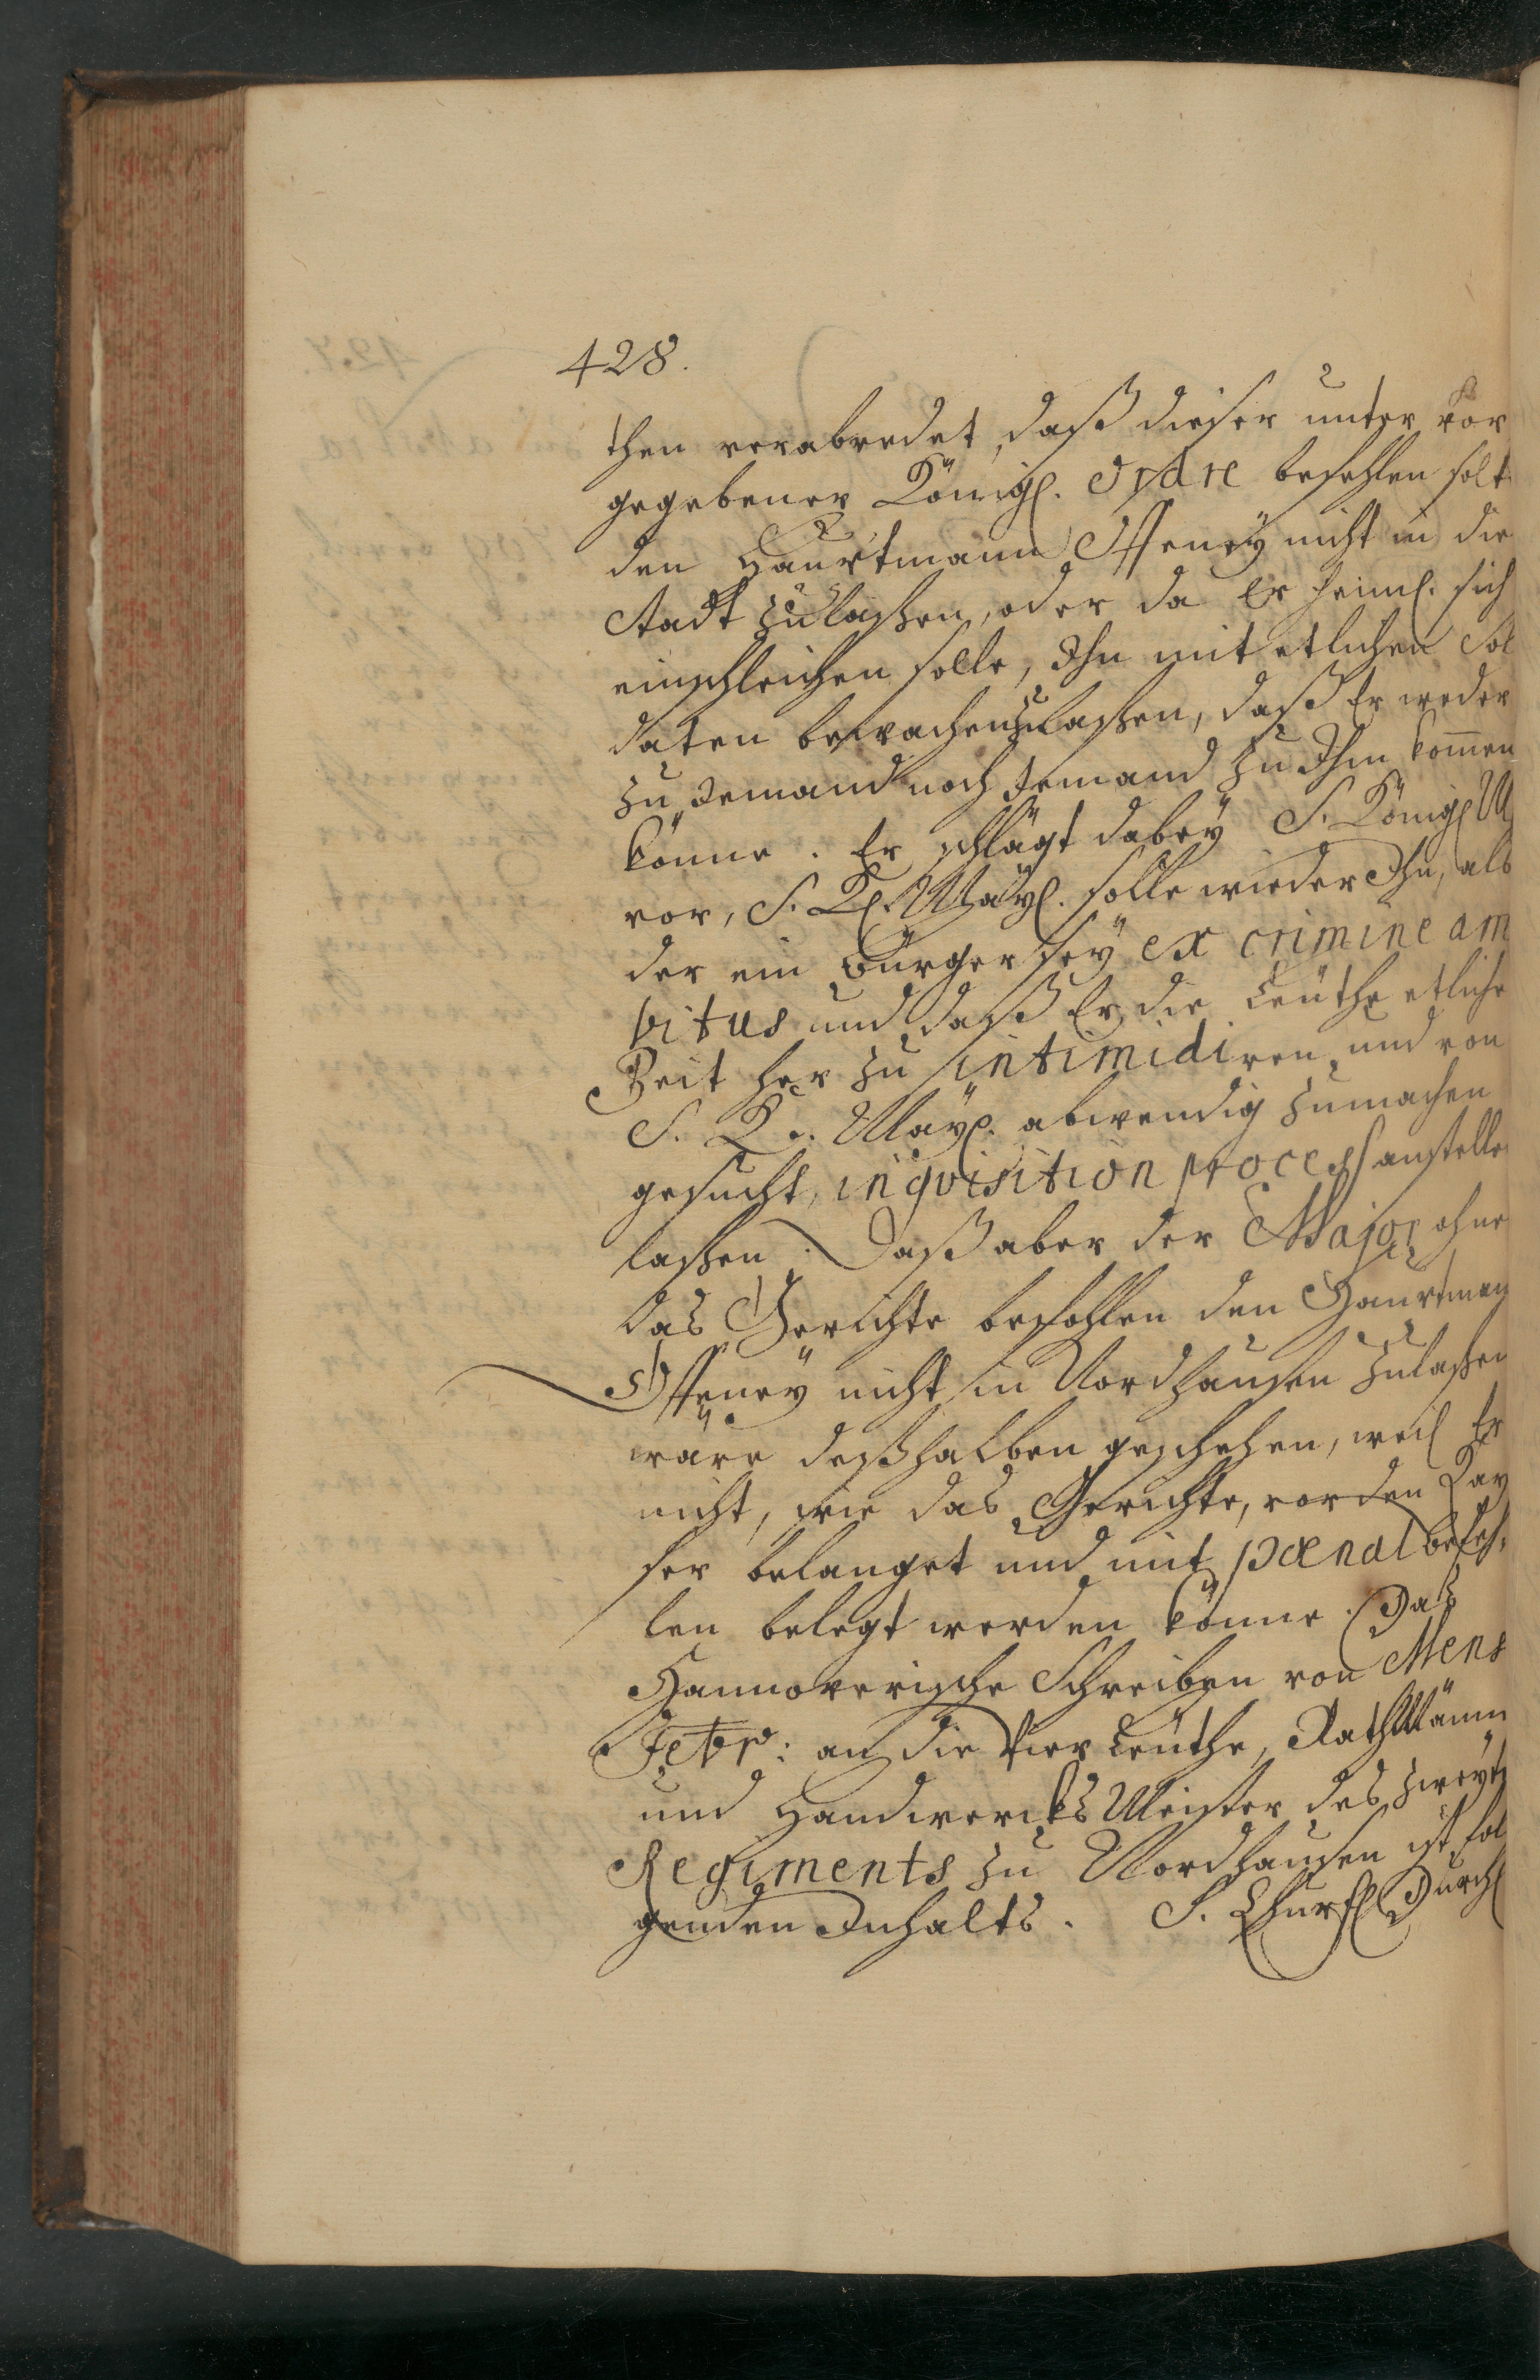 428.
then verabredet, daß dieser unter vor
gegebener Königl. Ordre befehlen solt
den Haubtmann Offeney nicht in die
Stadt zulaßen, oder da Er heiml. sich
einschleichen solle, Ihn mit etlichen Sol
daten bewachen zulaßen, daß Er weder
zu Jemand noch Jemand zu Ihm kom̄en
könne. Er schlägt dabey S. Königl M
vor, S. Kl. Mayl. solle wieder Ihn, als
der ein Bürger sey ex crimine am
bitus und daß Er die Leuthe etliche
Zeit her zu intimidiren und von
S. K. Mayl. abwendig zumachen
gesucht, inqvisition process anstelle
laßen. Daß aber der Major ohne
das Gerichte befohlen den Haubtman
Offeney nicht in Nordhausen zulaßen
wäre deßhalben geschehen, weil Er
nicht, wie das Gerichte, vor den Kay
ser belanget und mit pœnal befeh,
len belegt werden könne. Daß
Hannoverische Schreiben von Mens
Febr: an die Vier Leuthe, RathMänn
und Handwercks Meister des zweyt
Regiments zu Nordhausen ist fol
genden Inhalts. S. Churfl Durchl